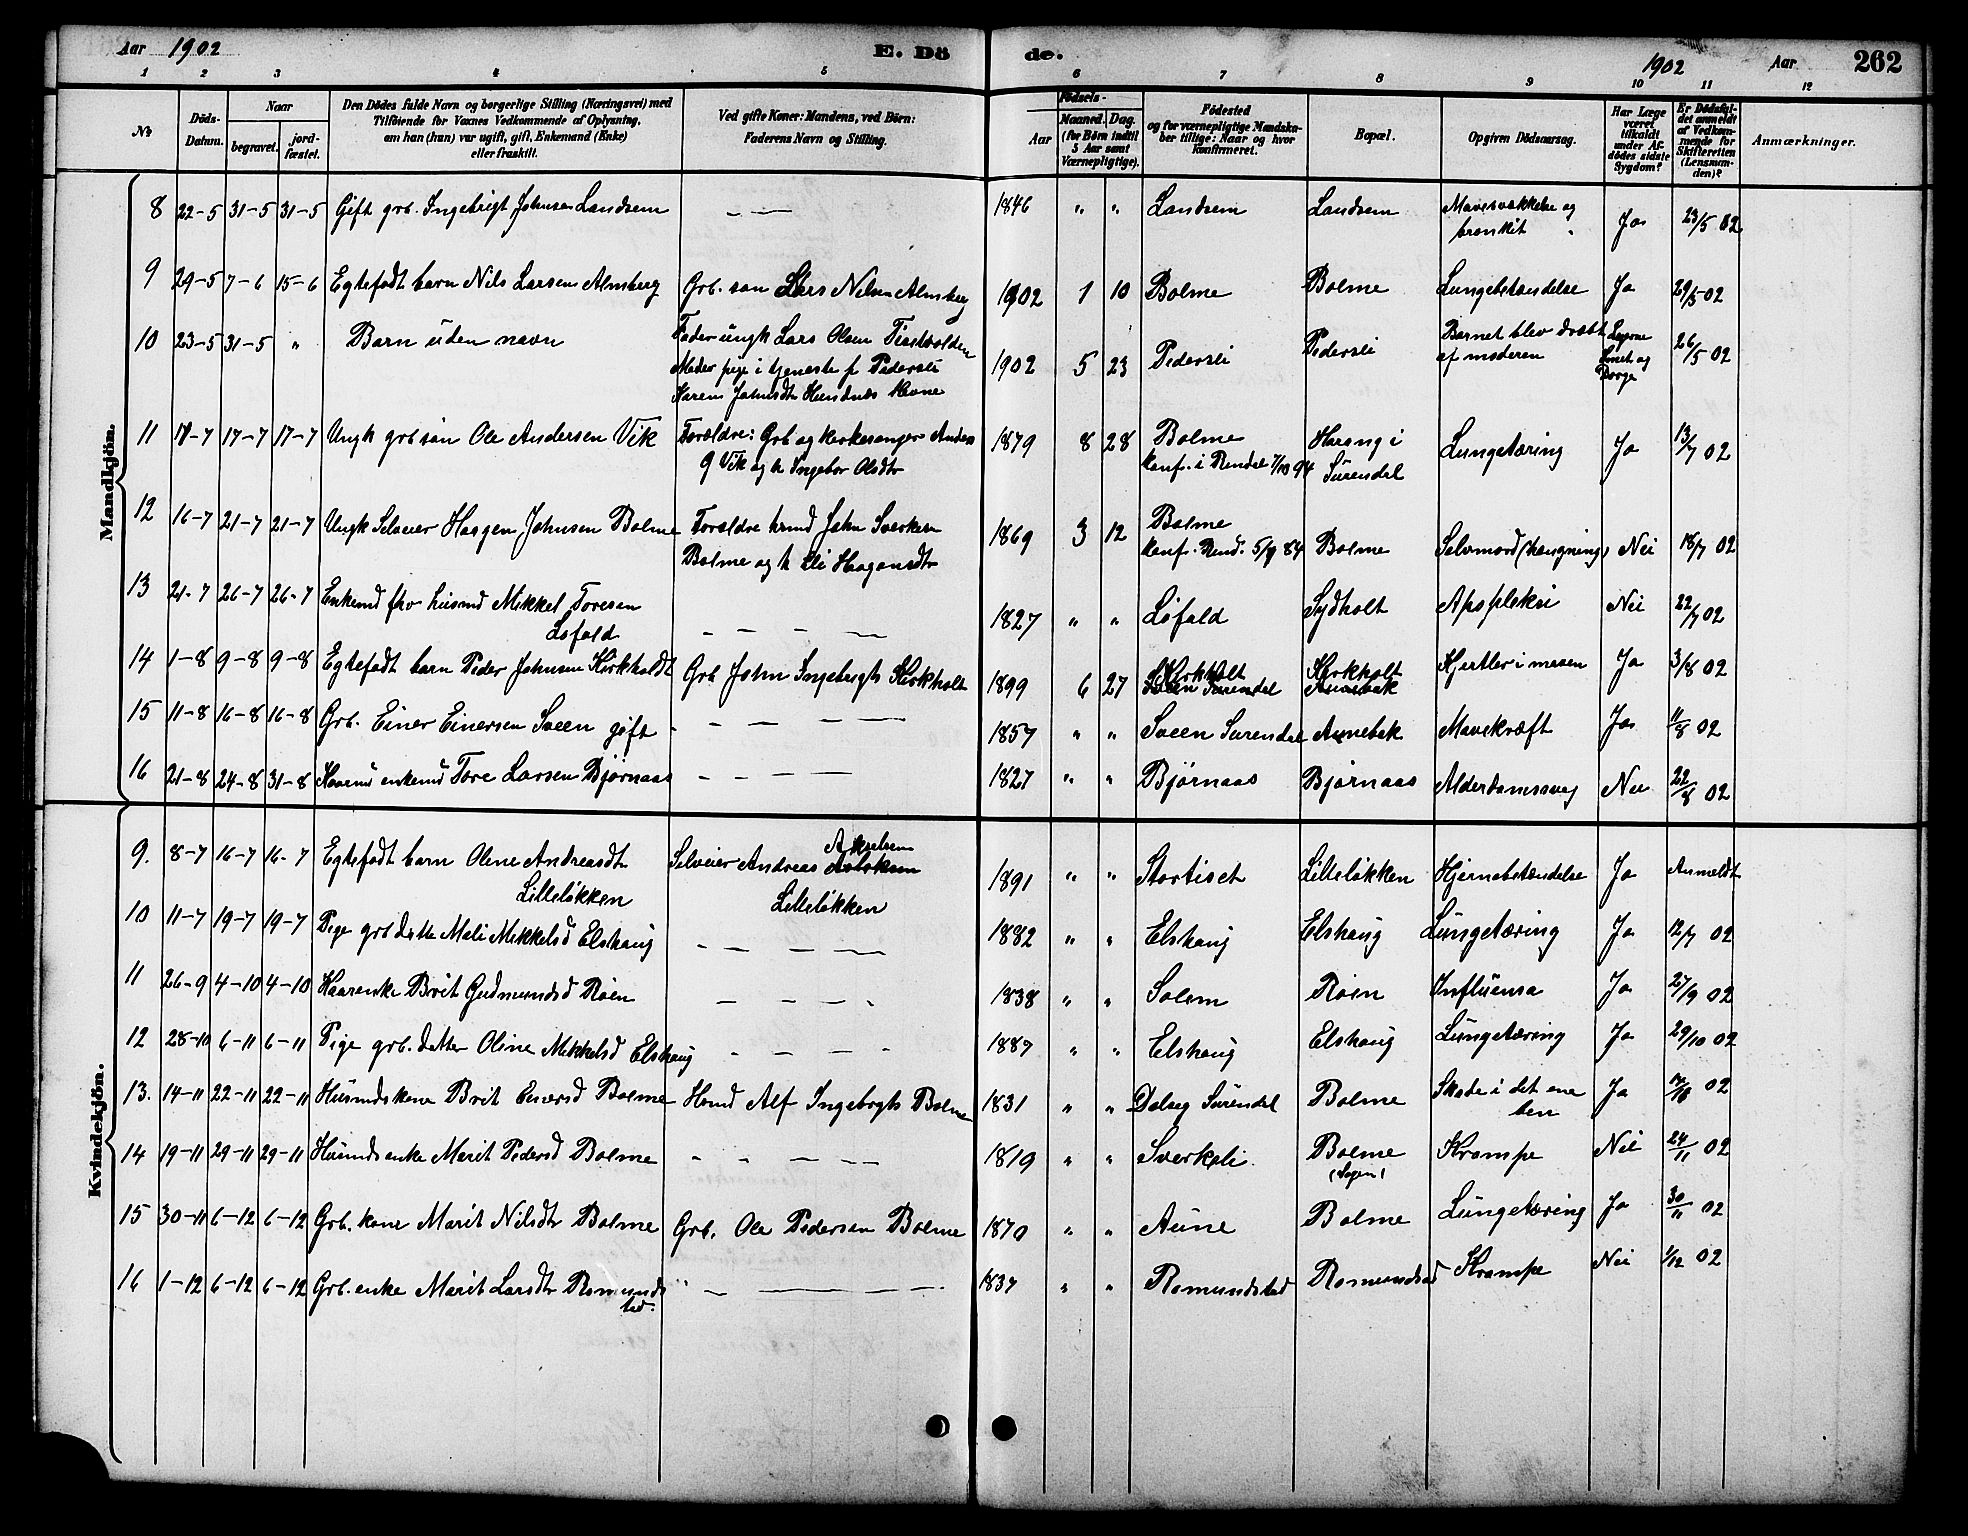 Aar 1902 E. Dö de. 1902 Aar 262
1 2 3 4 5 6 7 8 9 10 11 12
No
Döds-Datum.
Naar begravet. jordfæstet.
Den Dödes fulde Navn og borgerlige Stilling (Næringsvei) med Tilföiende for Voxnes Vedkommende af Oplysning, om han (hun) var ugift, gift, Enkemand (Enke) eller fraskilt.
Ved gifte Koner: Mandens, ved Börn: Faderens Navn og Stilling.
Födsels-
Aar Maaned. Dag. (for Börn indtil 5 Aar samt Værnepligtige).
Födested og for værnepligtige Mandskaber tillige: Naar og hvor konfirmeret.
Bopæl.
Opgiven Dödsaarsag.
Har Læge været tilkaldt under Afdödes sidste Sygdom?
Er Dödsfaldet anmeldt af Vedkommende for Skifteretten (Lensmanden)?
Anmærkninger.
Mandkjön.
8 22-5 31-5 31-5 Gift grb. Ingebrigt Johnsen Landsem — — 1846 " " Landsem Landsem Mavesvækkelse og bronkit Ja 23/5 02
9 29-5 7-6 15-6 Egtefødt barn Nils Larsen Almberg Grb. søn Lars Nilsen Almberg 1902 1 10 Bolme Bolme Lungebetændelse Ja 29/5 02
10 23-5 31-5 " Barn uden navn Fader ungk Lars Olsen
Moder pige i tjeneste p Pedersli
Karen Johnsdtr Hundnes Hevne 1902 5 23 Pedersli Pedersli Barnet blev dræbt af moderen 26/5 02
11 11-7 17-7 17-7 Ungk grb søn Ole Andersen Vik Forældre: Grb og kirkesanger Anders
Vik og h Ingebor Olsdtr 1879 8 28 Bolme
konf. i Rendal 7/10 94 Harang i Surendal Lungetæring Ja 13/7 02
12 16-7 21-7 21-7 Ungk Selveier Haagen Johnsen Bolme Forældre hmd John Sverksen
Bolme og h Eli Haagensdtr 1869 3 12 Bolme
konf. Rend. 5/9 84 Bolme Selvmord (hængning) Nei 18/7 02
13 21-7 26-7 26-7 Enkemd fhv husmd Mikkel Toresen
Løfald — — — — 1827 " " Løfald Sydholt Apopleksi Nei 22/7 02
14 1-8 9-8 9-8 Egtefødt barn Peder Johnsen Kirkholdt Grb John Ingebrigts Kirkholt 1899 6 27 Kirkholt Kirkholt Kjertler i maven Ja 3/8 02
15 11-8 16-8 16-8 Grb. Einer Einersen Sveen gift — — — — 1857 " " Sveen Surendal Aunebak Mavekræft Ja 11/8 02
16 21-8 24-8 31-8 enkemd Tore Larsen Bjørnaas — — — — 1827 " " Bjørnaas Bjørnaas Alderdomssvag Nei 22/8 02
Kvindekjön.
9. 8-7 16-7 16-7 Egtefødt barn Oline Andreasdtr
Lilleløkken Selveier Andreas Akselsen
Lilleløkken 1891 " " Stortiset Lilleløkken Hjernebetændelse Ja Anmeldt
10 11-7 19-7 19-7 Pige grb datter Mali Mikkelsd Elshaug — — — — 1882 " " Elshaug Elshaug Lungetæring Ja 12/7 02
11 26-9 4-10 4-10 Kaarenke Brit Gudmundsd Røen — — — 1838 " " Solem Røen Influensa Ja 27/9 02
12 28-10 6-11 6-11 Pige grb. datter Oline Mikkelsd Elshaug — — — 1887 " " Elshaug Elshaug Lungetæring Ja 29/10 02
13. 14-11 22-11 22-11 Husmdskone Brit Einersd Bolme Husmd Alf Ingebrgts Bolme 1831 " " Dalseg Surendal Bolme Skade i det ene ben Ja 02
14 19-11 29-11 29-11 Husmdsenke Marit Pedersd Bolme — — — — 1819 " " Sverksli Bolme Krampe Nei 24/11 02
15 30-11 6-12 6-12 Grb. kone Marit Nilsdtr Bolme Grb. Ole Pedersen Bolme 1870 " " Aune Bolme Lungetæring Ja 30/11 02
16 1-12 6-12 6-12 Grb. enke Marit Larsdtr Romundstad. — — — — 1837 " " Romundstad Romundstad Krampe Nei 1/12 02